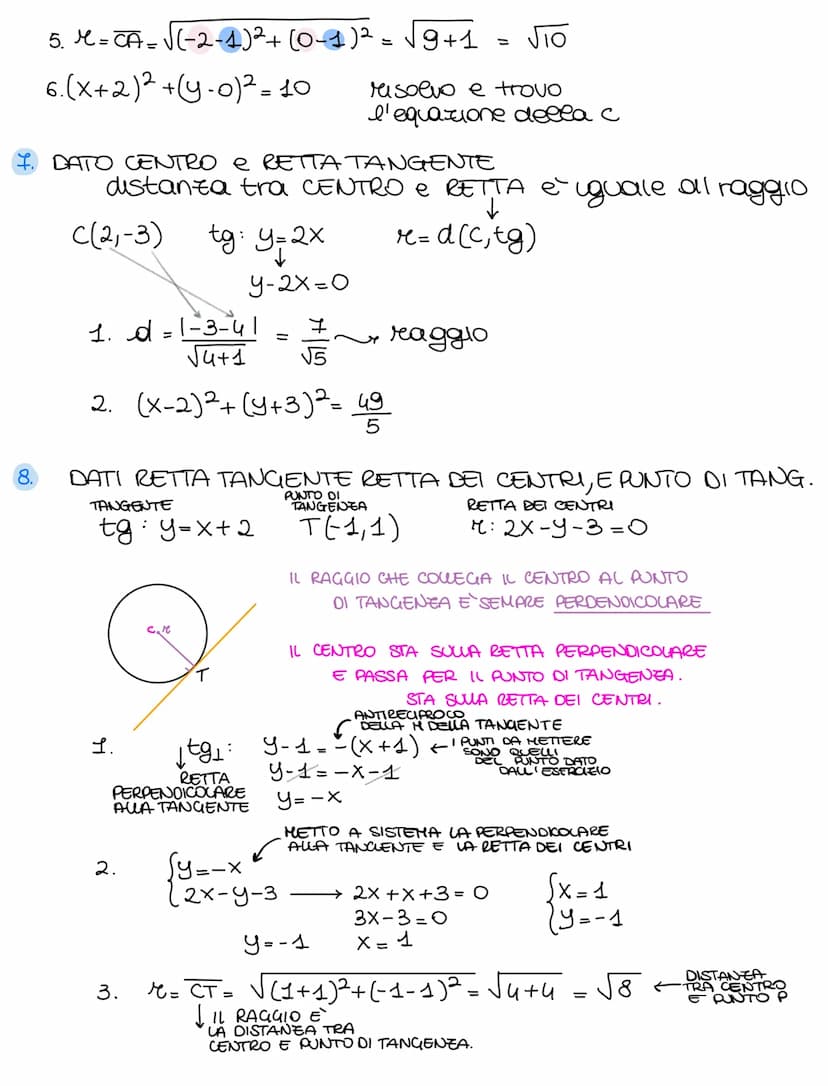 5. r = CA = √(-2-1)² + (0-1)² = √9+1 = √10
6. (x+2)² + (y-0)² = 10 risolvo e trovo
l'equazione della C
7. DATO CENTRO e RETTA TANGENTE
distanza tra CENTRO e RETTA è uguale al raggio
C(2,-3) tg: y=2x r= d(C,tg)
y-2x=0
1. d = |-3-4| / √4+1 = 7/√5 raggio
2. (x-2)² + (y+3)² = 49/5
8. DATI RETTA TANGENTE RETTA DEI CENTRI, E PUNTO DI TANG.
TANGENTE PUNTO DI TANGENZA RETTA DEI CENTRI
tg: y=x+2 T(-1,1) r: 2x-y-3=0
IL RAGGIO CHE COLLEGA IL CENTRO AL PUNTO
DI TANGENZA E' SEMPRE PERPENDICOLARE
C r
T
IL CENTRO STA SULLA RETTA PERPENDICOLARE
E PASSA PER IL PUNTO DI TANGENZA.
STA SULLA RETTA DEI CENTRI.
ANTIRECIPROCO
DELLA M DELLA TANGENTE
1. tg⊥: y-1 = -(x+1) ← I PUNTI DA METTERE
SONO QUELLI
DEL PUNTO DATO
DALL'ESERCIZIO
RETTA
PERPENDICOLARE
ALLA TANGENTE
y-1=-x-1
y=-x
METTO A SISTEMA LA PERPENDICOLARE
ALLA TANGENTE E LA RETTA DEI CENTRI
2. {y=-x
{2x-y-3 → 2x+x+3=0 {x=1
3x-3=0 {y=-1
y=-1 x=1
3. r = CT = √(1+1)² + (-1-1)² = √4+4 = √8 ← DISTANZA
TRA CENTRO
E PUNTO P
↓ IL RAGGIO E'
LA DISTANZA TRA
CENTRO E PUNTO DI TANGENZA.